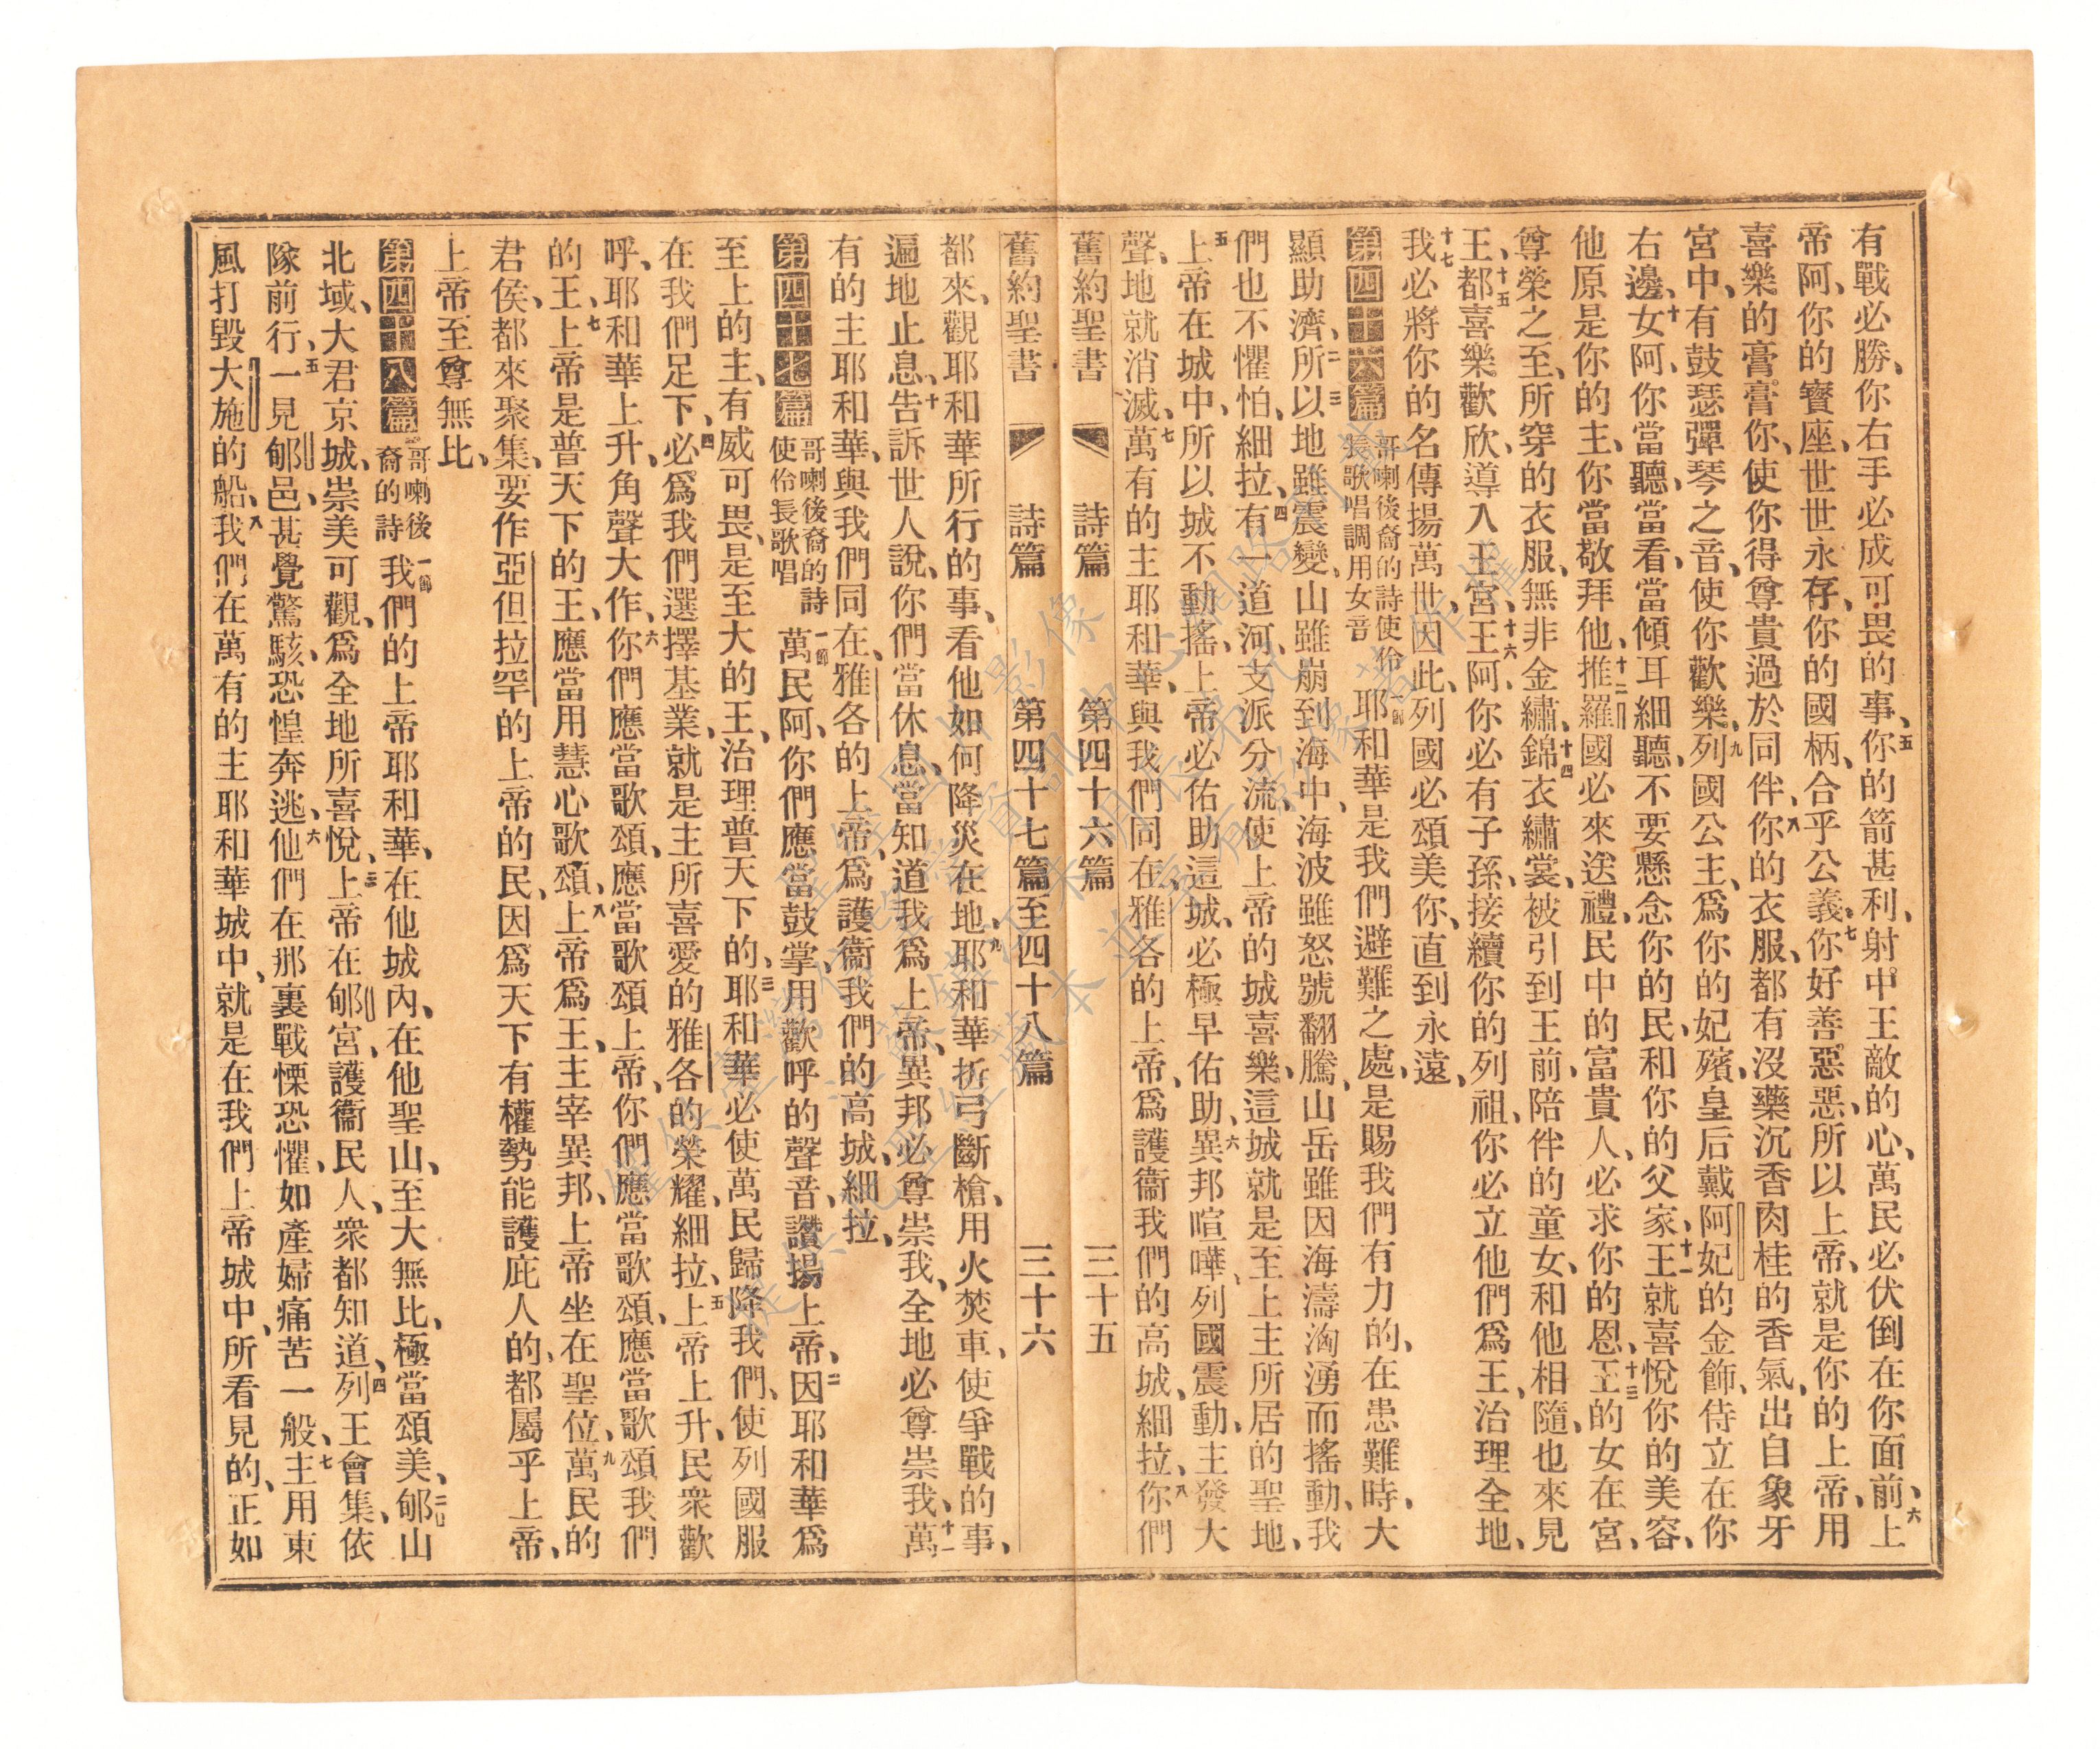 有戰必勝、你右手必成可畏的事、五你的箭甚利、射中王敵的心、萬民必伏倒在你面前、六上
帝阿、你的寶座、世世永存、你的國柄、合乎公義、七你好善惡惡、所以上帝、就是你的上帝、用
喜樂的膏膏你、使你得尊貴過於同伴、八你的衣服、都有沒藥沉香肉桂的香氣、出自象牙
宮中、有鼓瑟彈琴之音、使你歡樂、九列國公主、爲你的妃殯、皇后戴阿妃的金飾、侍立在你
右邊、十女阿、你當聽、當看、當傾耳細聽、不要懸念你的民、和你的父家、十一王就喜悅你的美容、
他原是你的主、你當敬拜他、十二推羅國必來送禮、民中的富貴人、必求你的恩、十三王的女在宮、
尊榮之至、所穿的衣服、無非金繡、十四錦衣繡裳、被引到王前、陪伴的童女、和他相隨、也來見
王、十五都喜樂歡欣、導入王宮、十六王阿、你必有子孫、接續你的列祖、你必立他們爲王、治理全地、
十七我必將你的名傳揚萬世、因此、列國必頌美你、直到永遠、
第四十六篇 哥喇後裔的詩使伶長歌唱調用女音 一節耶和華是我們避難之處、是賜我們有力的、在患難時、大
顯助濟、二所以三地雖震變、山雖崩到海中、海波雖怒號翻騰、山岳雖因海濤洶湧而搖動、我
們也不懼怕、細拉、四有一道河、支派分流、使上帝的城喜樂、這城就是至上主所居的聖地、
五上帝在城中、所以城不動搖、上帝必佑助這城、必極早佑助、六異邦喧嘩、列國震動、主發大
聲、地就消滅、七萬有的主耶和華、與我們同在、雅各的上帝、爲護衞我們的高城、細拉、八你們
舊約聖書 詩篇 第四十六篇 三十五
舊約聖書 詩篇 第四十七篇至四十八篇 三十六
都來、觀耶和華所行的事、看他如何降災在地、九耶和華折弓斷槍、用火焚車、使爭戰的事、
遍地止息、十告訴世人說、你們當休息、當知道我爲上帝、異邦必尊崇我、全地必尊崇我、十一萬
有的主耶和華、與我們同在、雅各的上帝、爲護衞我們的高城、細拉、
第四十七篇 哥喇後裔的詩使伶長歌唱 一節萬民阿、你們應當鼓掌、用歡呼的聲音、讚揚上帝、二因耶和華爲
至上的主、有威可畏、是至大的王、治理普天下的、三耶和華必使萬民歸降我們、使列國服
在我們足下、四必爲我們選擇基業、就是主所喜愛的雅各的榮耀、細拉、五上帝上升、民衆歡
呼、耶和華上升、角聲大作、六你們應當歌頌、應當歌頌上帝、你們應當歌頌、應當歌頌我們
的王、七上帝是普天下的王、應當用慧心歌頌、八上帝爲王、主宰異邦、上帝坐在聖位、九萬民的
君侯、都來聚集、要作亞但拉罕的上帝的民、因爲天下有權勢能護庇人的、都屬乎上帝、
上帝至尊無比、
第四十八篇 哥喇後裔的詩 一節我們的上帝耶和華、在他城內、在他聖山、至大無比、極當頌美、二郇山
北域、大君京城、崇美可觀、爲全地所喜悅、三上帝在郇宮、護衞民人、衆都知道、四列王會集、依
隊前行、五一見郇邑、甚覺驚駭、恐惶奔逃、六他們在那裏戰慄恐懼、如產婦痛苦一般、七主用東
風打毀大施的船、八我們在萬有的主耶和華城中、就是在我們上帝城中、所看見的、正如